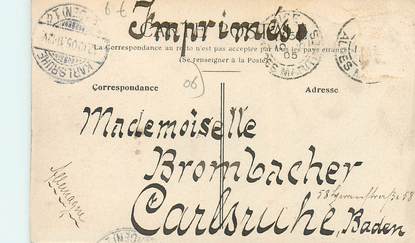 6-6
Imprimés
La Correspondance au recto n'est pas acceptée par tous les pays étrangers
(Se renseigner à la Poste)
KARLSRUHE
05
06
Correspondance
Adresse
Mademoiselle
Brombacher
58
Carlsruhe, Baden
Allemagne